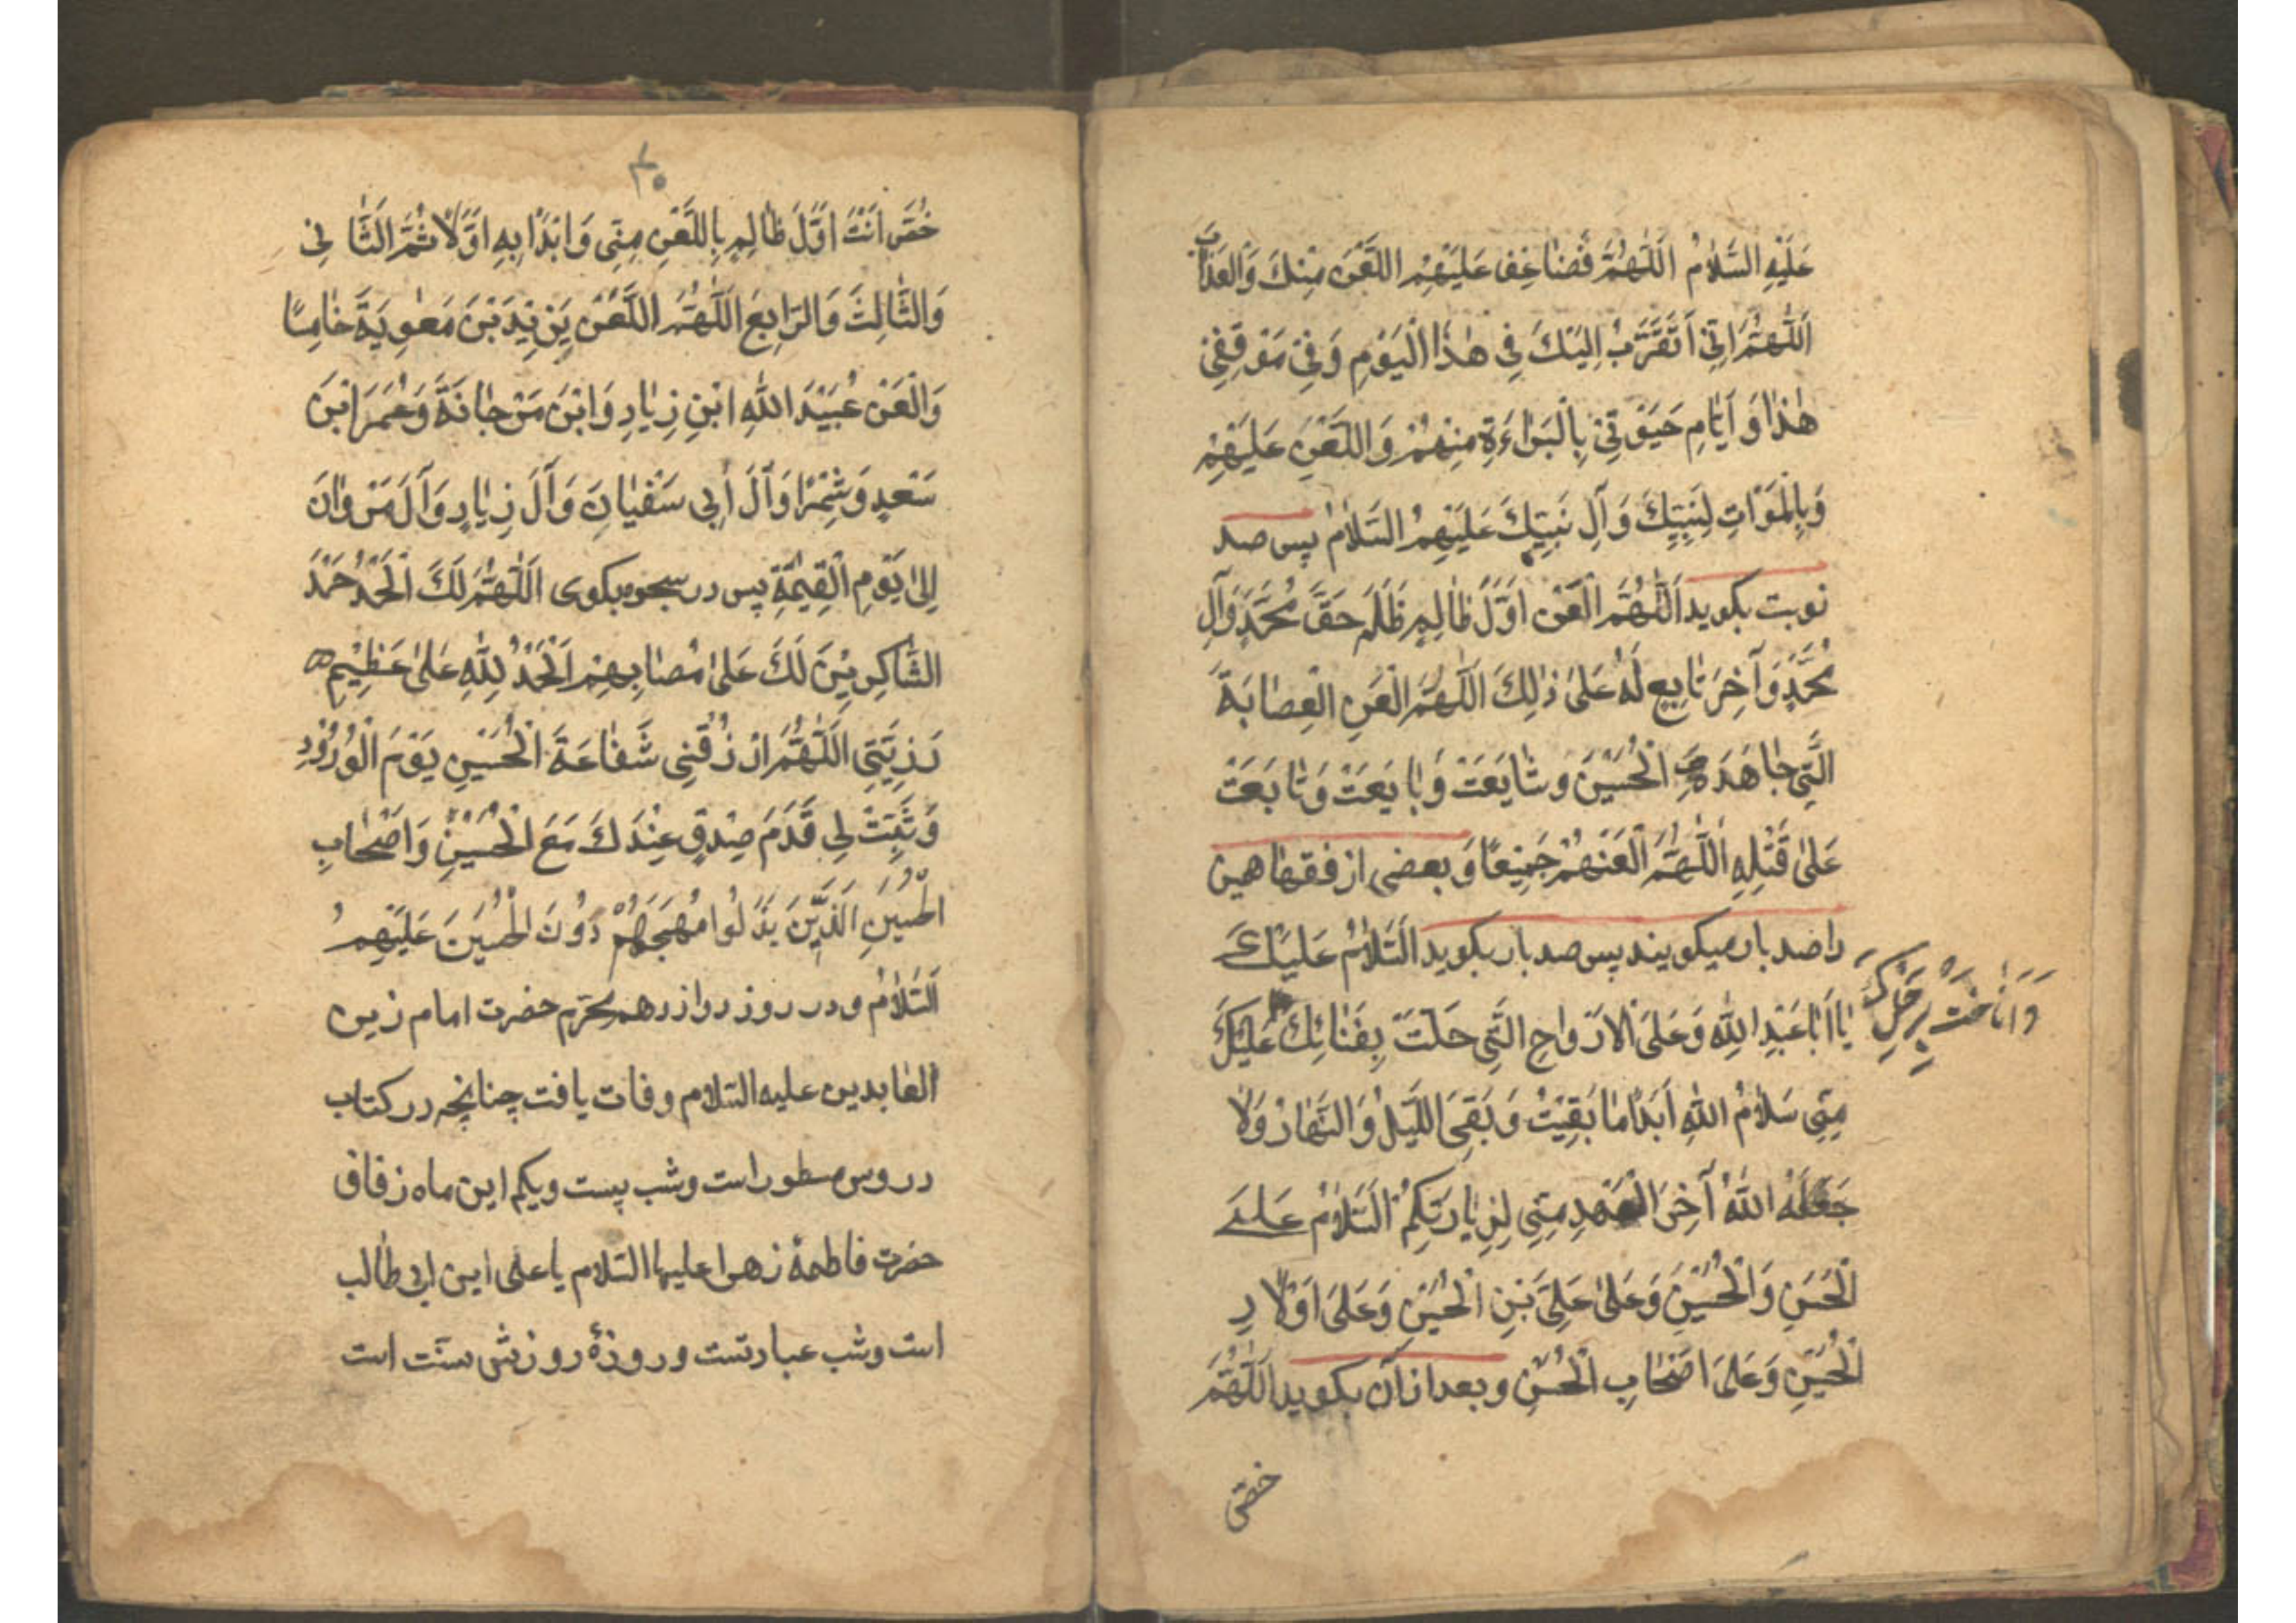 عَلَیْهِ السَّلٰامُ اَللّٰهُمَّ فَضٰاعِف عَلَیْهِمُ اللَّعْنَ مِنْكَ وَالْعَذٰابَ
اَللّٰهُمَّ اِنّیٖ اَتَقَرَّبُ اِلَیْكَ فِی هٰذَا الْیَوْمِ وَفِیْ مَوْقِفِیْ
هٰذٰا وَ اَیّٰامِ حَیٰوتِیْ بِالْبَرٰاءَةِ مِنْهُمْ وَ اللَّعْنِ عَلَیْهِمْ
وَبِالْمَوَاتِ لِنَبِیِّكَ وَ آلِ نَبِیِّكَ عَلَیْهِمُ السَّلٰامُ پس صد
نوبت بکوید اَللّٰهُمَّ الْعَنْ اَوَّلَ ظٰالِمٍ ظَلَمَ حَقَّ مُحَمَّدٍ وَآلِ
مُحَمَّدٍ وَ آخِرَ تٰابِعٍ لَهُ عَلیٰ ذٰلِكَ اَللّٰهُمَّ الْعَنِ الْعِصٰابَةَ
الَّتِی جٰاهَدَتِ الْحُسَیْنَ وَ شٰایَعَتْ وَ بٰایَعَتْ وَ تٰابَعَتْ
عَلیٰ قَتْلِهِ اَللّٰهُمَّ الْعَنْهُمْ جَمِیْعًا وَ بعضی از فقهٰا همین
را صد بار میکویند پس صد بار بکوید اَلسَّلٰامُ عَلَیْكَ
یٰا اَبٰا عَبْدِ اللّٰهِ وَ عَلَی الْاَرْوٰاحِ الَّتِی حَلَّتْ بِفِنٰائِكَ عَلَیْكَ
وَ اَنٰاخَتْ بِرَحْلِكَ
مِنّی سَلٰامُ اللّٰهِ اَبَدًا مٰا بَقِیْتُ وَ بَقِیَ اللَّیْلُ وَ النَّهٰارُ وَلٰا
جَعَلَهُ اللّٰهُ آخِرَ الْعَهْدِ مِنّی لِزِیٰارَتِکُمْ اَلسَّلٰامُ عَلَی
الْحَسَنِ وَ الْحُسَیْنِ وَ عَلیٰ عَلِیِّ بْنِ الْحُسَیْنِ وَ عَلیٰ اَوْلٰادِ
الْحُسَیْنِ وَ عَلیٰ اَصْحٰابِ الْحُسَیْنِ و بعد از آن بکوید اَللّٰهُمَّ
خصّ
۳۰
خُصَّ اَنْتَ اَوَّلَ ظٰالِمٍ بِاللَّعْنِ مِنّی وَ ابْدَأْ بِهِ اَوَّلًا ثُمَّ الثّٰانِی
وَالثّٰالِثَ وَ الرّٰابِعَ اَللّٰهُمَّ الْعَنْ یَزِیْدَ بْنَ مَعٰوِیَةَ خٰامِسًا
وَ الْعَنْ عُبَیْدَ اللّٰهِ ابْنِ زِیٰادٍ وَ ابْنَ مَرْجٰانَةَ وَ عُمَرَ ابْنَ
سَعْدٍ وَ شِمْرًا وَ آلَ اَبِی سَفْیٰانَ وَ آلَ زِیٰادٍ وَ آلَ مَرْوٰانَ
اِلیٰ یَوْمِ الْقِیٰمَةِ پس در سجوه بکوی اَللّٰهُمَّ لَكَ الْحَمْدُ حَمْدَ
الشّٰاکِرِیْنَ لَكَ عَلیٰ مُصٰابِهِمْ اَلْحَمْدُ لِلّٰهِ عَلیٰ عَظِیْمِ
رَزِیَّتِی اَللّٰهُمَّ ارْزُقْنِی شَفٰاعَةَ الْحُسَیْنِ یَوْمَ الْوُرُوْدِ
وَ ثَبِّتْ لِی قَدَمَ صِدْقٍ عِنْدَكَ مَعَ الْحُسَیْنِ وَ اَصْحٰابِ
الْحُسَیْنِ اَلَّذِیْنَ بَذَلُوا مُهَجَهُمْ دُوْنَ الْحُسَیْنَ عَلَیْهِمُ
السَّلٰامُ و در روز دوازدهم محرّم حضرت امام زین
العٰابدین علیه السّلام وفات یافت چنانچه در کتاب
دروس مسطور است و شب بیست و یکم این ماه زفاف
حضرت فاطمهٔ زهرا علیها السّلام با علی ابن ابی طالب
است و شب عبادتست و روزهٔ روزش سنّت است